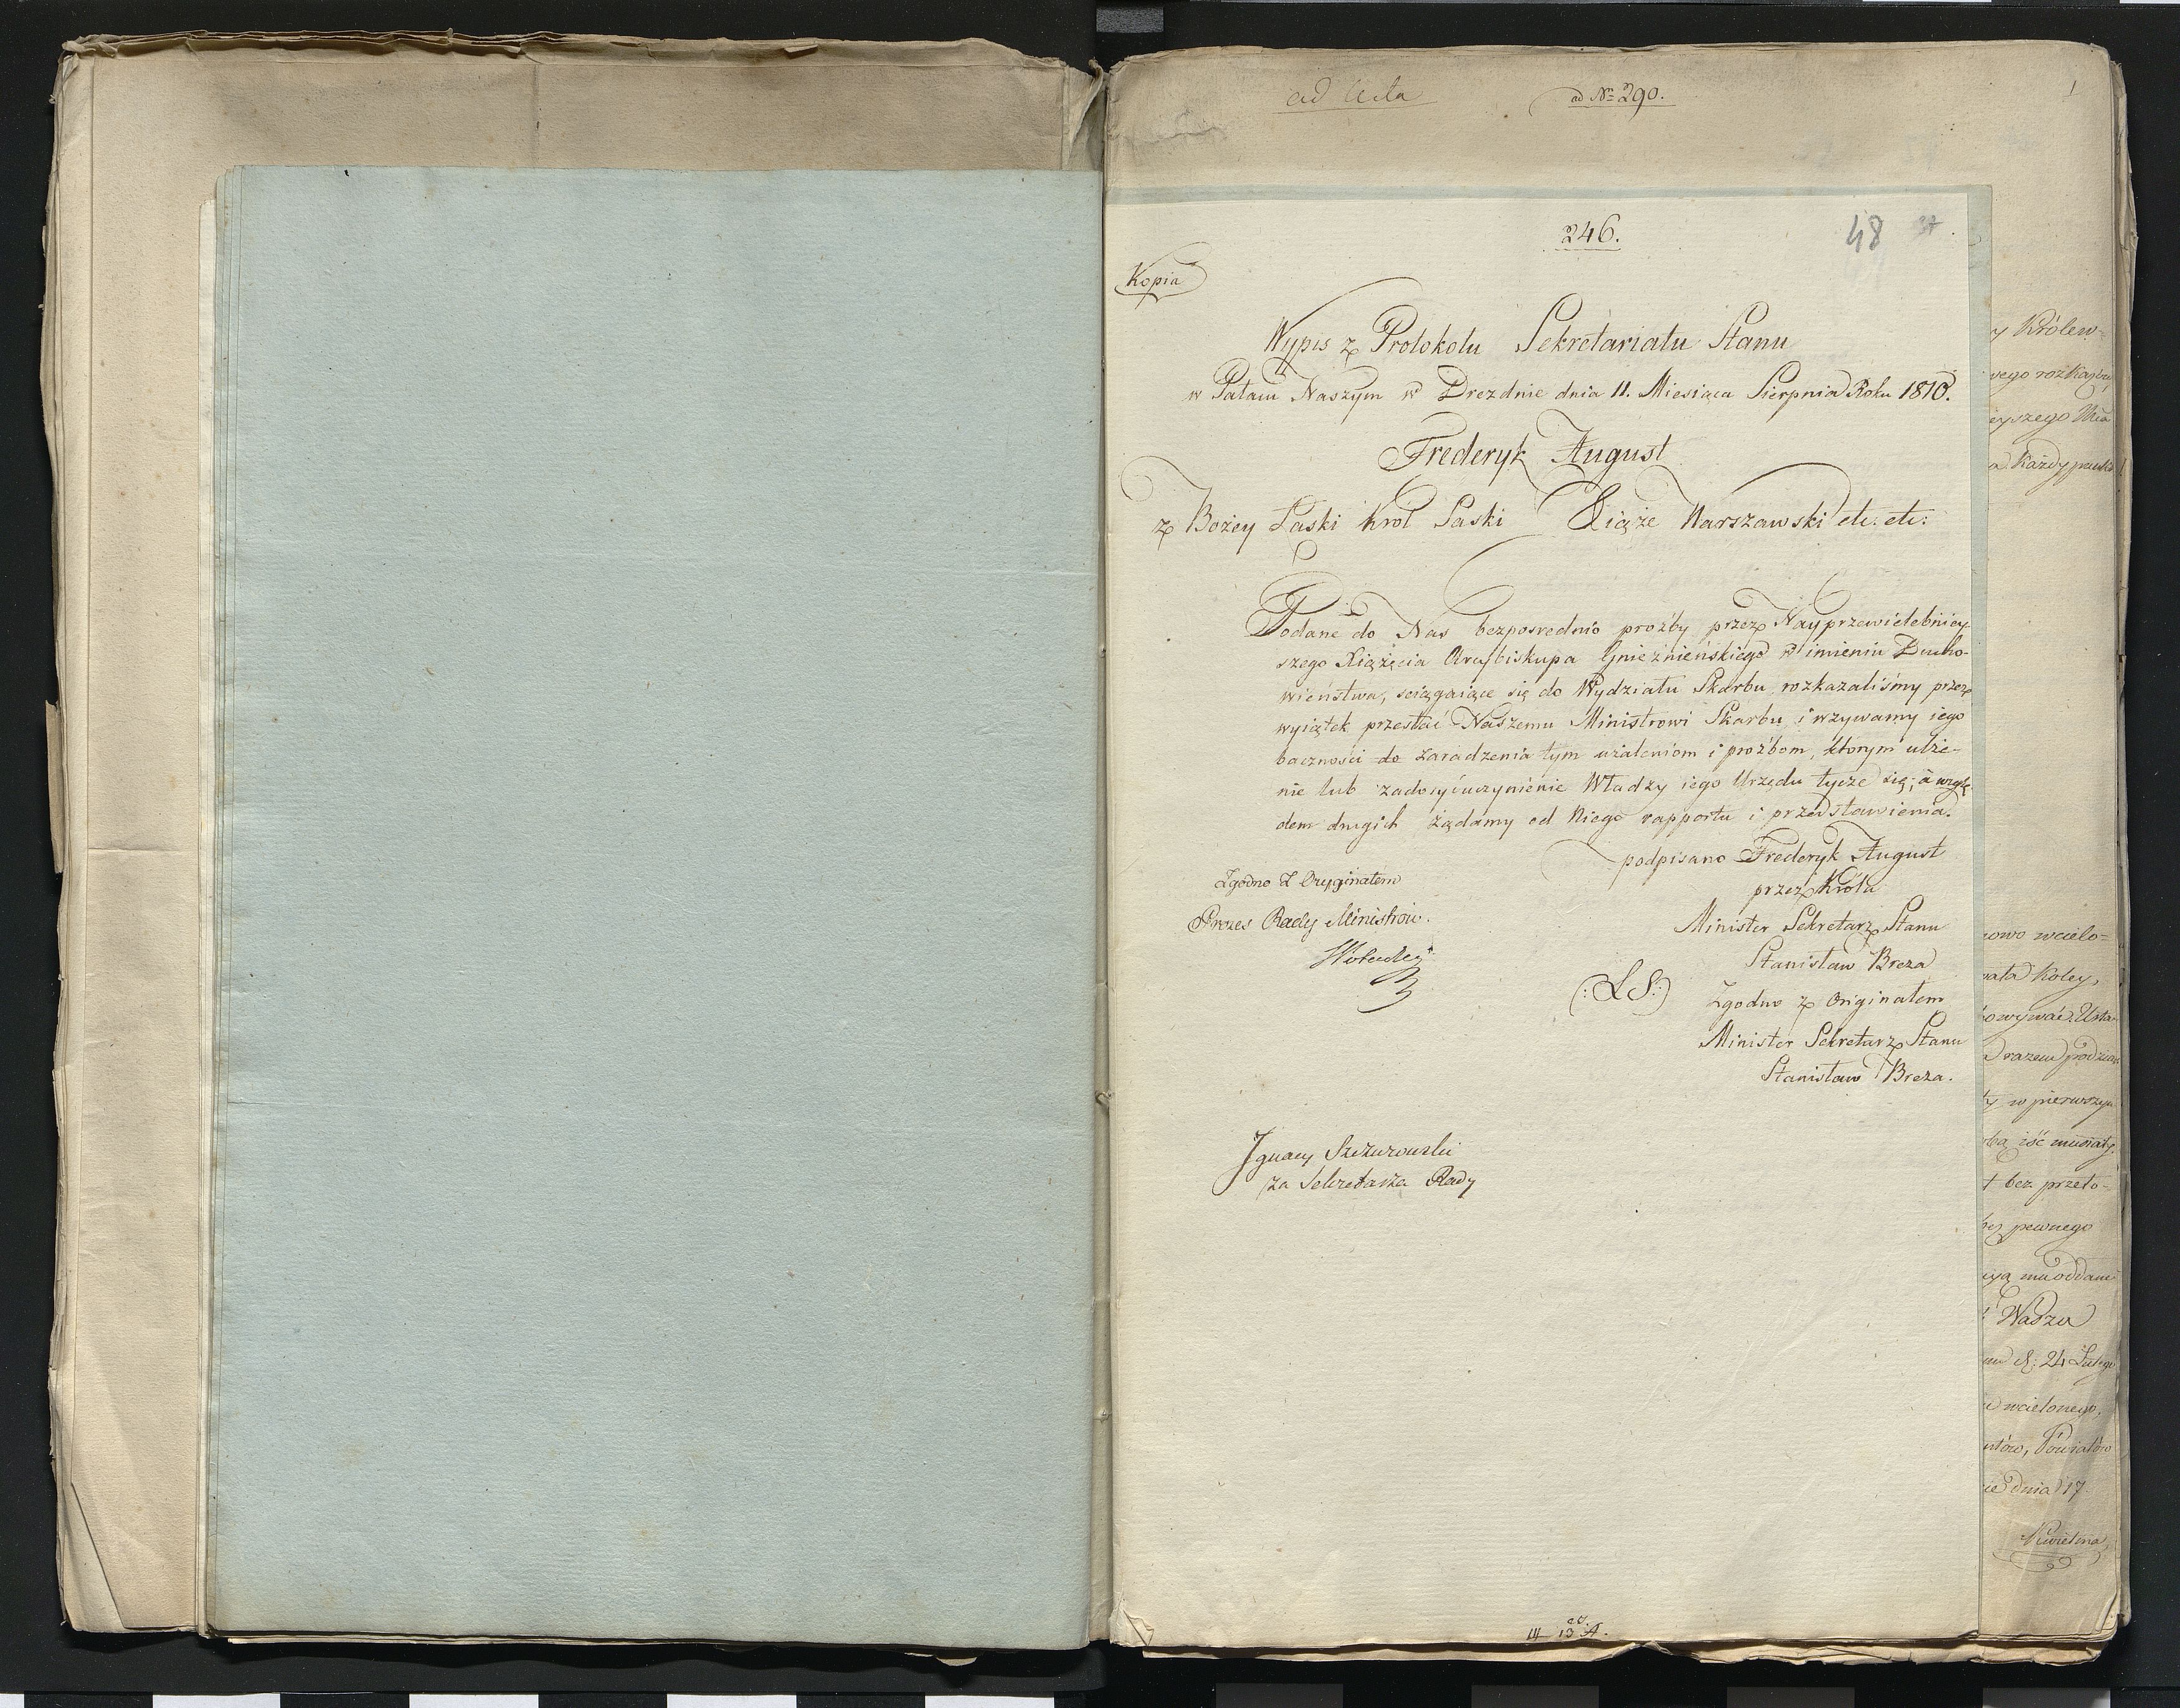 ad Acta
ad Nr 290.
1
246.
48
37
Kopia
Wypis z Protokołu Sekretariatu Stanu
w Pałacu Naszym w Dreznie dnia 11. Miesiąca Sierpnia Roku 1810.
Frederyk August
z Bożey Łaski Król Saski Xiąże Warszawski etc: etc:
Podane do Nas bezposrednio proźby przez Nayprzewielebniey-
szego Xiążęcia Arcybiskupa Gnieznieńskiego w imieniu Ducho-
wieństwa, sciągaiące się do Wydziału Skarbu, rozkazaliśmy przez
wyiątek przesłać Naszemu Ministrowi Skarbu, i wzywamy iego
baczności do zaradzenia tym użaleniom i proźbom, którym ulże-
nie lub zadosyćuczynienie Władzy iego Urzędu tycze się; a wzglę-
dem drugich żądamy od Niego rapportu i przedstawienia.
podpisano Frederyk August
przez Króla
Minister Sekretarz Stanu
Stanisław Breza
(:LS:) Zgodno z Originałem
Minister Sekretarz Stanu
Stanisław Breza.
Zgodno z Oryginałem
Prezes Rady Ministrów.
Ignacy Szczurowski
za Sekretarza Rady
y Królew-
wego rozkazu,
eyszego
a każdy
nowo wcielo=
wała koley,
razem
ty w pierwszym
bą iść musiały.
t bez przeło-
bez pewnego
Wadzu
24 Lutego
wcielonego,
Powiatów
dnia 17
Kwietnia
III 13 A.